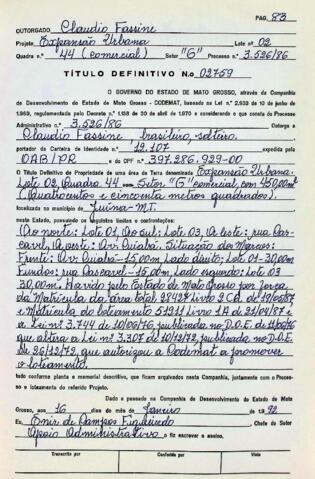 PAG. 83
OUTORGADO Claudio Fassini
Projeto Expansão Urbana Lote nº 02
Quadra nº 44 (comercial) Setor "G" Processo nº 3.526/86
TÍTULO DEFINITIVO No. 02759
O GOVERNO DO ESTADO DE MATO GROSSO, através da Companhia
de Desenvolvimento do Estado de Mato Grosso - CODEMAT, baseado na Lei nº 2.933 de 10 de junho
1.969, regulamentado pelo Decreto n.º 1.138 de 30 de abril de 1970 e considerando o que consta do Processo
Administrativo n.º 3.526/86 Outorga a
Claudio Fassini, brasileiro, solteiro,
portador da Carteira de Identidade nº 12.107 expedida pelo
OAB/PR e do CPF nº 397.286.929-00
O Título Definitivo de Propriedade de uma área de Terra denominada Expansão Urbana-
Lote 02, Quadra 44 com Setor "G" comercial, com 450,00m²
(Quatrocentos e cincoenta metros quadrados).
localizada no município de Juina-MT.
neste Estado, possuindo os seguintes limites e confrontações:
(Ao norte: Lote 01, Ao sul: Lote 03, A leste: rua Cas-
cavel, A oeste: Av. Cuiabá. Situação dos Marcos:
Frente: Av. Cuiabá-15,00m, Lado direito: Lote 01-30,00m
Fundos: rua Cascavel-15,00m, Lado esquerdo: Lote 03
30,00m. Havido pelo Estado de Mato Grosso por força
da Matrícula da área total 28427 Livro 2 Cd. de 19/06/87
e Matrícula do loteamento 51311 Livro 1A de 21/04/87 e
a Lei nº 3.744 de 10/06/76, publicada no D.O.E. de 11/06/76
que altera a Lei nº 3.307 de 18/12/72, publicada no D.O.E.
de 26/12/72, que autorizou a Codemat a promover
o loteamento.
tudo conforme planta e memorial descritivo, que ficam arquivados nesta Companhia, juntamente com o Proces-
so e loteamento do referido Projeto.
Dado e passado na Companhia de Desenvolvimento do Estado de Mato
Grosso, aos 16 dias do mês de Janeiro de 1.992
Eu, Enir de Campos Figueiredo Chefe do Setor
Apoio Administrativo o fiz escrever e assino.
Transcrito por Conferido por Visto